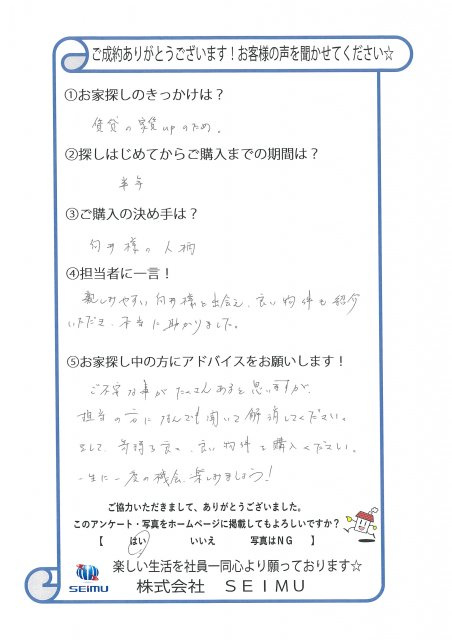 ご成約ありがとうございます！お客様の声を聞かせてください☆
①お家探しのきっかけは？
賃貸の家賃upのため。
②探しはじめてからご購入までの期間は？
半年
③ご購入の決め手は？
様の人柄
④担当者に一言！
親しみやすい 様と出会え、良い物件も紹介
いただき、本当に助かりました。
⑤お家探し中の方にアドバイスをお願いします！
ご不安な事がたくさんあると思いますが、
担当の方になんでも聞いて解消してください。
そして、気持ち良く、良い物件を購入ください。
一生に一度の機会、楽しみましょう！
ご協力いただきまして、ありがとうございました。
このアンケート・写真をホームページに掲載してもよろしいですか？
【 はい いいえ 写真はNG 】
楽しい生活を社員一同心より願っております☆
SEIMU 株式会社 ＳＥＩＭＵ